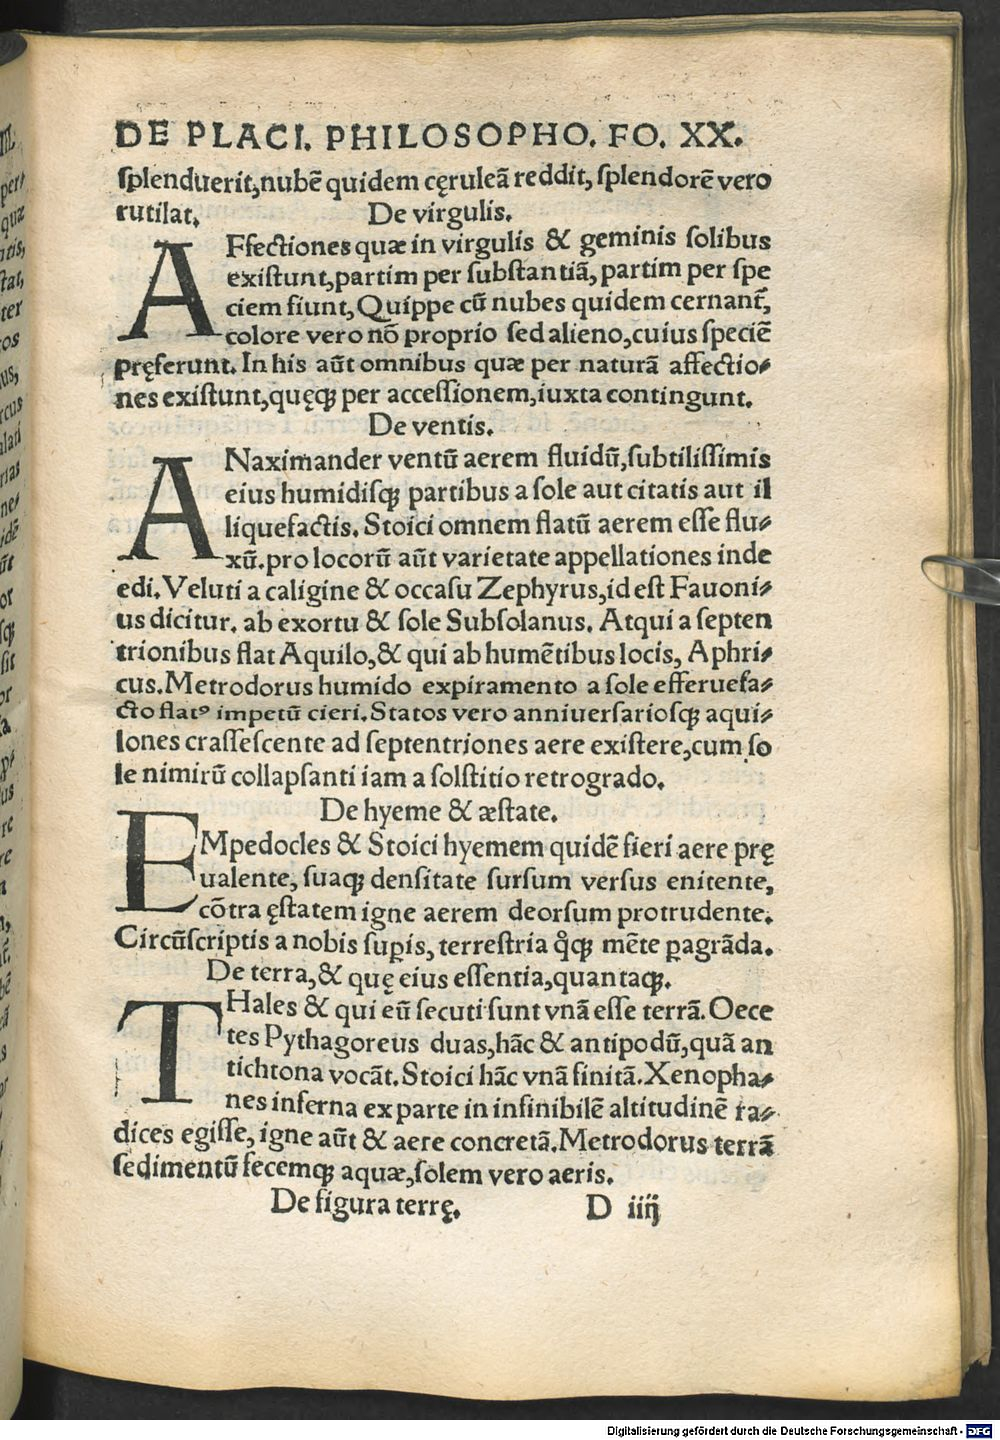 DE PLACI. PHILOSOPHO. FO. XX.
splenduerit, nubē quidem cęruleā reddit, splendorē vero
rutilat. De virgulis.
AFfectiones quæ in virgulis & geminis solibus
existunt, partim per substantiā, partim per spe
ciem fiunt, Quippe cū nubes quidem cernant̄,
colore vero nō proprio sed alieno, cuius speciē
pręferunt. In his aūt omnibus quæ per naturā affectio-
nes existunt, quęqꝫ per accessionem, iuxta contingunt.
De ventis.
ANaximander ventū aerem fluidū, subtilissimis
eius humidisqꝫ partibus a sole aut citatis aut il
liquefactis. Stoici omnem flatū aerem esse flu-
xū. pro locorū aūt varietate appellationes inde
edi. Veluti a caligine & occasu Zephyrus, id est Fauoni-
us dicitur. ab exortu & sole Subsolanus. Atqui a septen
trionibus flat Aquilo, & qui ab humētibus locis, Aphri-
cus. Metrodorus humido expiramento a sole efferuefa-
cto flatꝰ impetū cieri. Statos vero anniuersariosqꝫ aqui-
lones crassescente ad septentriones aere existere, cum so
le nimirū collapsanti iam a solstitio retrogrado.
De hyeme & æstate.
EMpedocles & Stoici hyemem quidē fieri aere prę
ualente, suaqꝫ densitate sursum versus enitente,
cōtra ęstatem igne aerem deorsum protrudente.
Circūscriptis a nobis suꝑis, terrestria qͥcqꝫ mēte ꝑagrāda.
De terra, & quę eius essentia, quantaqꝫ.
THales & qui eū secuti sunt vnā esse terrā. Oece
tes Pythagoreus duas, hāc & antipodū, quā an
tichtona vocāt. Stoici hāc vnā finitā. Xenopha-
nes inferna ex parte in infinibilē altitudinē ra-
dices egisse, igne aūt & aere concretā. Metrodorus terrā
sedimentū fecemqꝫ aquæ, solem vero aeris.
De figura terrę. D iiij
Digitalisierung gefördert durch die Deutsche Forschungsgemeinschaft - DFG